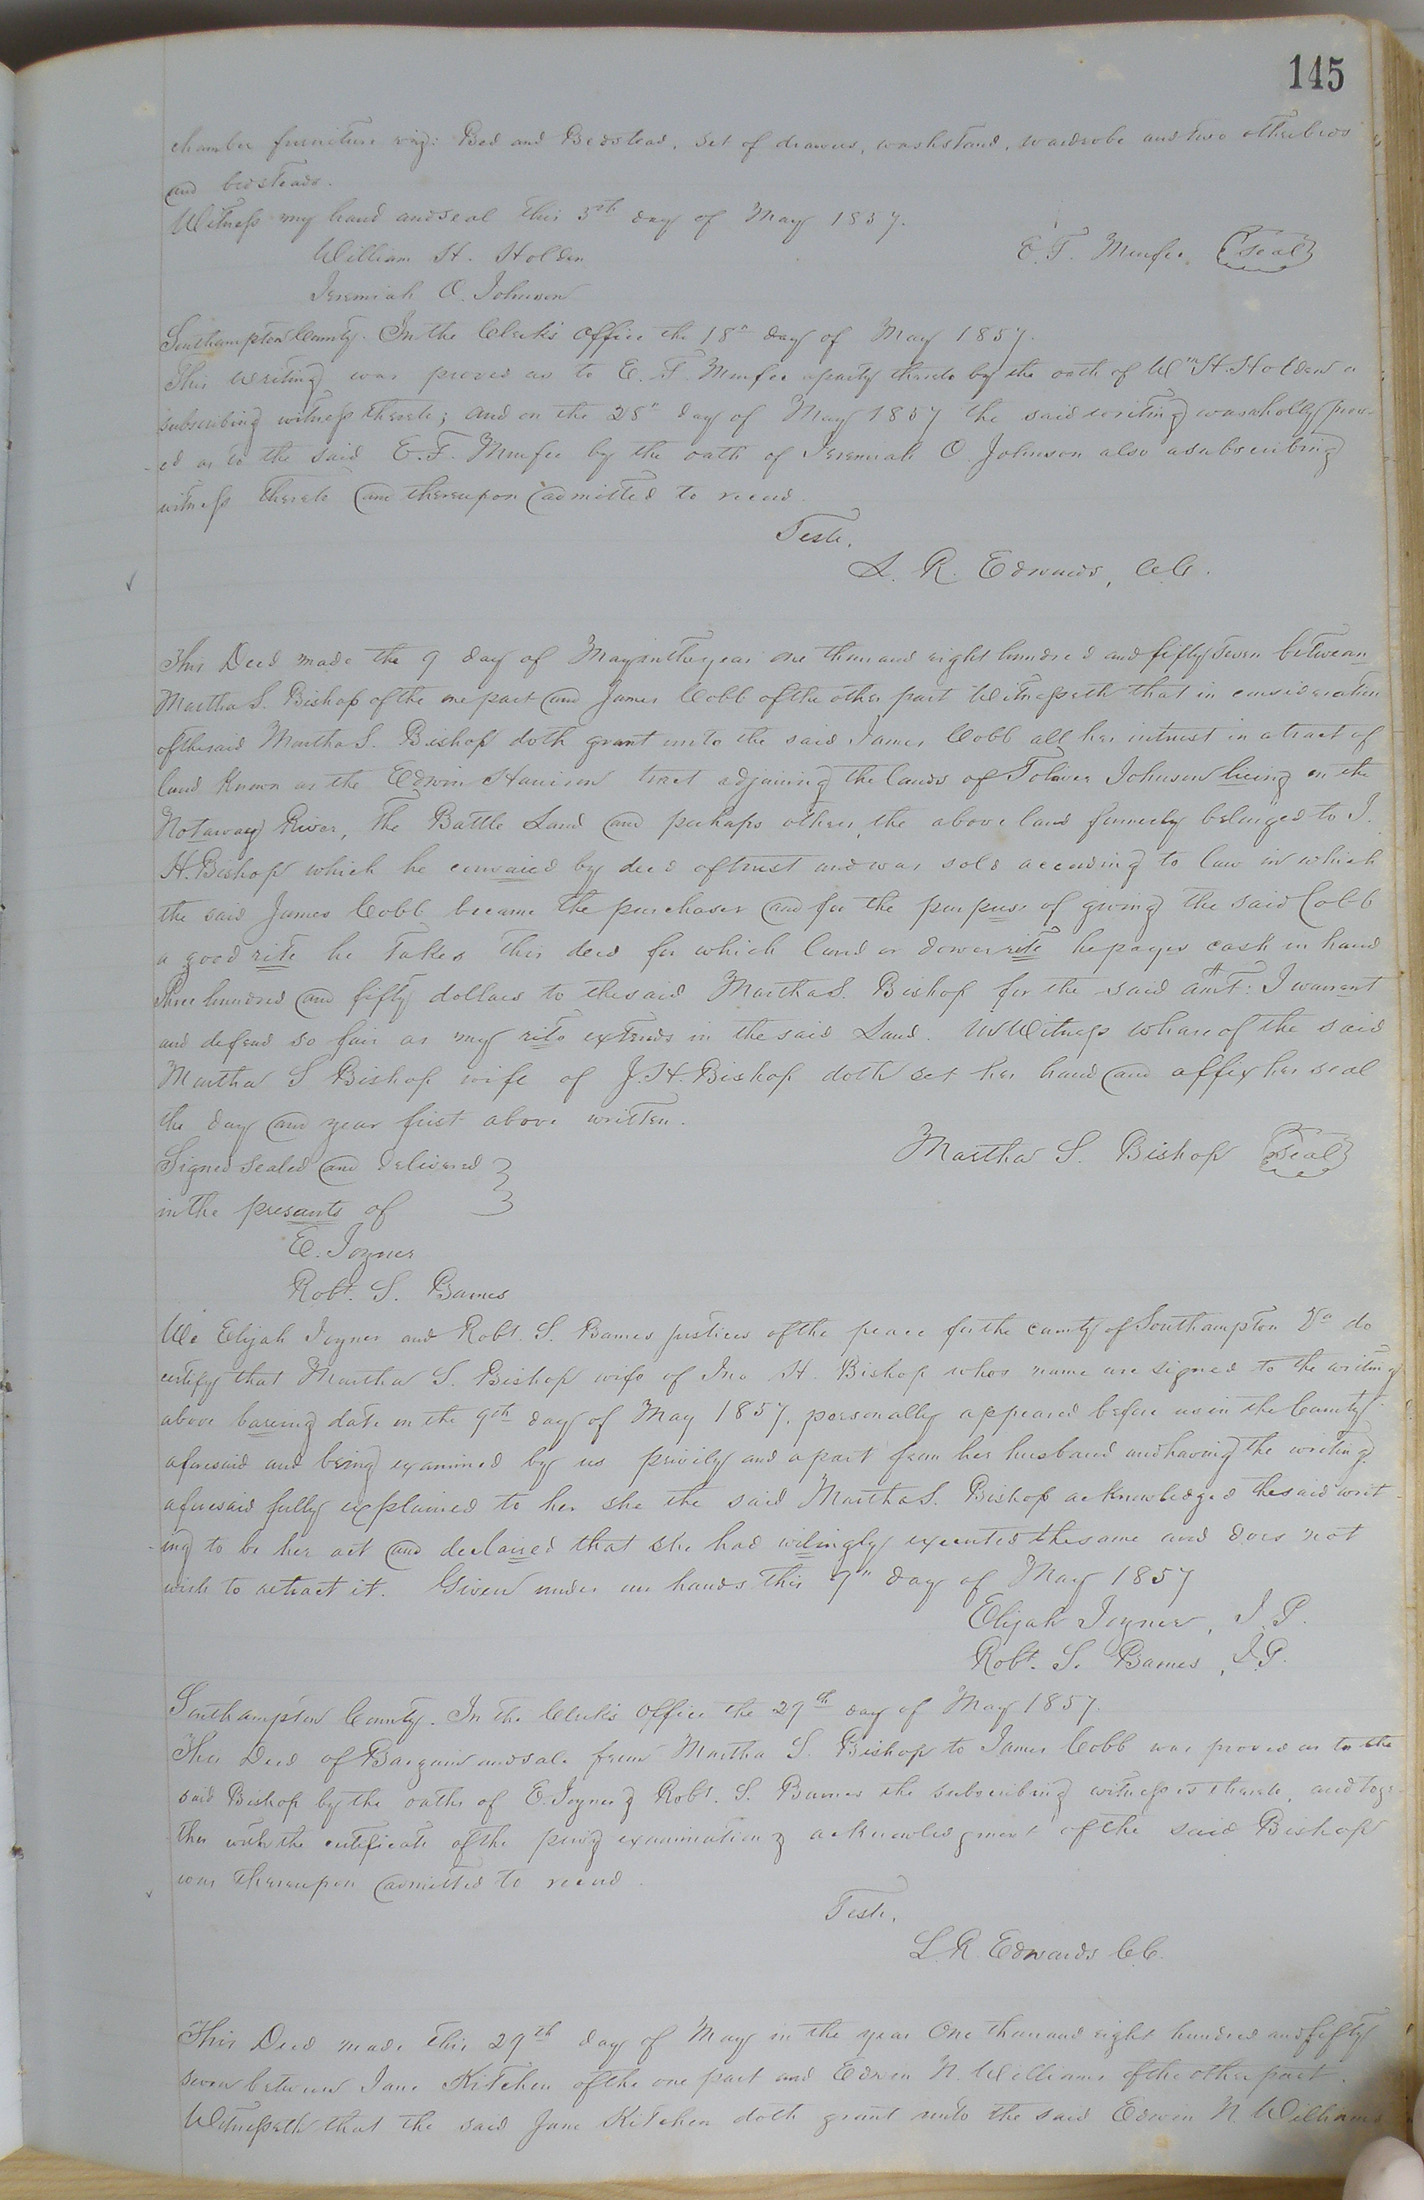 145
chamber furniture viz: Bed and Bedstead, set of drawers, washstand, wardrobe and two other beds
and bedsteads.
Witness my hand and seal this 5th day of May 1857.
William H. Holden
E. F. Minfee (Seal)
Jeremiah O. Johnson
Southampton County. In the Clerk's Office the 18" day of May 1857.
This writing was proved as to E. F. Minfee a party thereto by the oath of Wm H. Holden a
subscribing witness thereto; and on the 28" day of May 1857 the said writing was wholly prov-
ed as to the said E. F. Minfee by the oath of Jeremiah O. Johnson also a subscribing
witness thereto and thereupon admitted to record.
Teste,
L. R. Edwards, C.C.
This Deed made the 9 day of May in the year one thousand eight hundred and fifty seven between
Martha S. Bishop of the one part and James Cobb of the other part Witnesseth that in consideration
of the said Martha S. Bishop doth grant unto the said James Cobb all her intrust in a tract of
land known as the Edwin Harrison tract adjoining the lands of Toliver Johnson lieing on the
Notaway River, The Battle Land and perhaps others, the above land formerly belonged to J.
H. Bishop which he convaied by deed of trust and was sold according to law in which
the said James Cobb became the purchaser and for the purpuse of giving the said Cobb
a good rite he takes this deed for which land or dower rite he payes cash in hand
Three hundred and fifty dollars to the said Martha S. Bishop for the said amt: I warrant
and defend so fair as my rite extends in the said Land. In Witness whareof the said
Martha S Bishop wife of J. H. Bishop doth set her hand and affix her seal
the day and year first above written.
Martha S. Bishop (Seal)
Signed sealed and delivered }
in the presants of }
E. Joyner
Robt. S. Barnes
We Elijah Joyner and Robt. S. Barnes justices of the peace for the county of Southampton Va do
certify that Martha S. Bishop wife of Jno H. Bishop whos name are signed to the writing
above bareing date on the 9th day of May 1857, personally appeared before us in the County
aforesaid and being examined by us privily and apart from her husband and having the writing
aforesaid fully explained to her she the said Martha S. Bishop acknowledged the said writ-
ing to be her act and declaired that she had wilingly executed the same and does not
wish to retract it. Given under our hands this 9" day of May 1857
Elijah Joyner, J.P.
Robt. S. Barnes, J.P.
Southampton County. In the Clerk's Office the 29th day of May 1857.
This Deed of Bargain and sale from Martha S. Bishop to James Cobb was proved as to the
said Bishop by the oaths of E. Joyner & Robt. S. Barnes the subscribing witnesses thereto, and toge-
ther with the certificate of the privy examination & acknowledgment of the said Bishop
was thereupon admitted to record.
Teste,
L. R. Edwards C.C.
This Deed made this 29th day of May in the year One thousand eight hundred and fifty
seven between Jane Kitchen of the one part and Edwin N. Williams of the other part.
Witnesseth that the said Jane Kitchen doth grant unto the said Edwin N. Williams